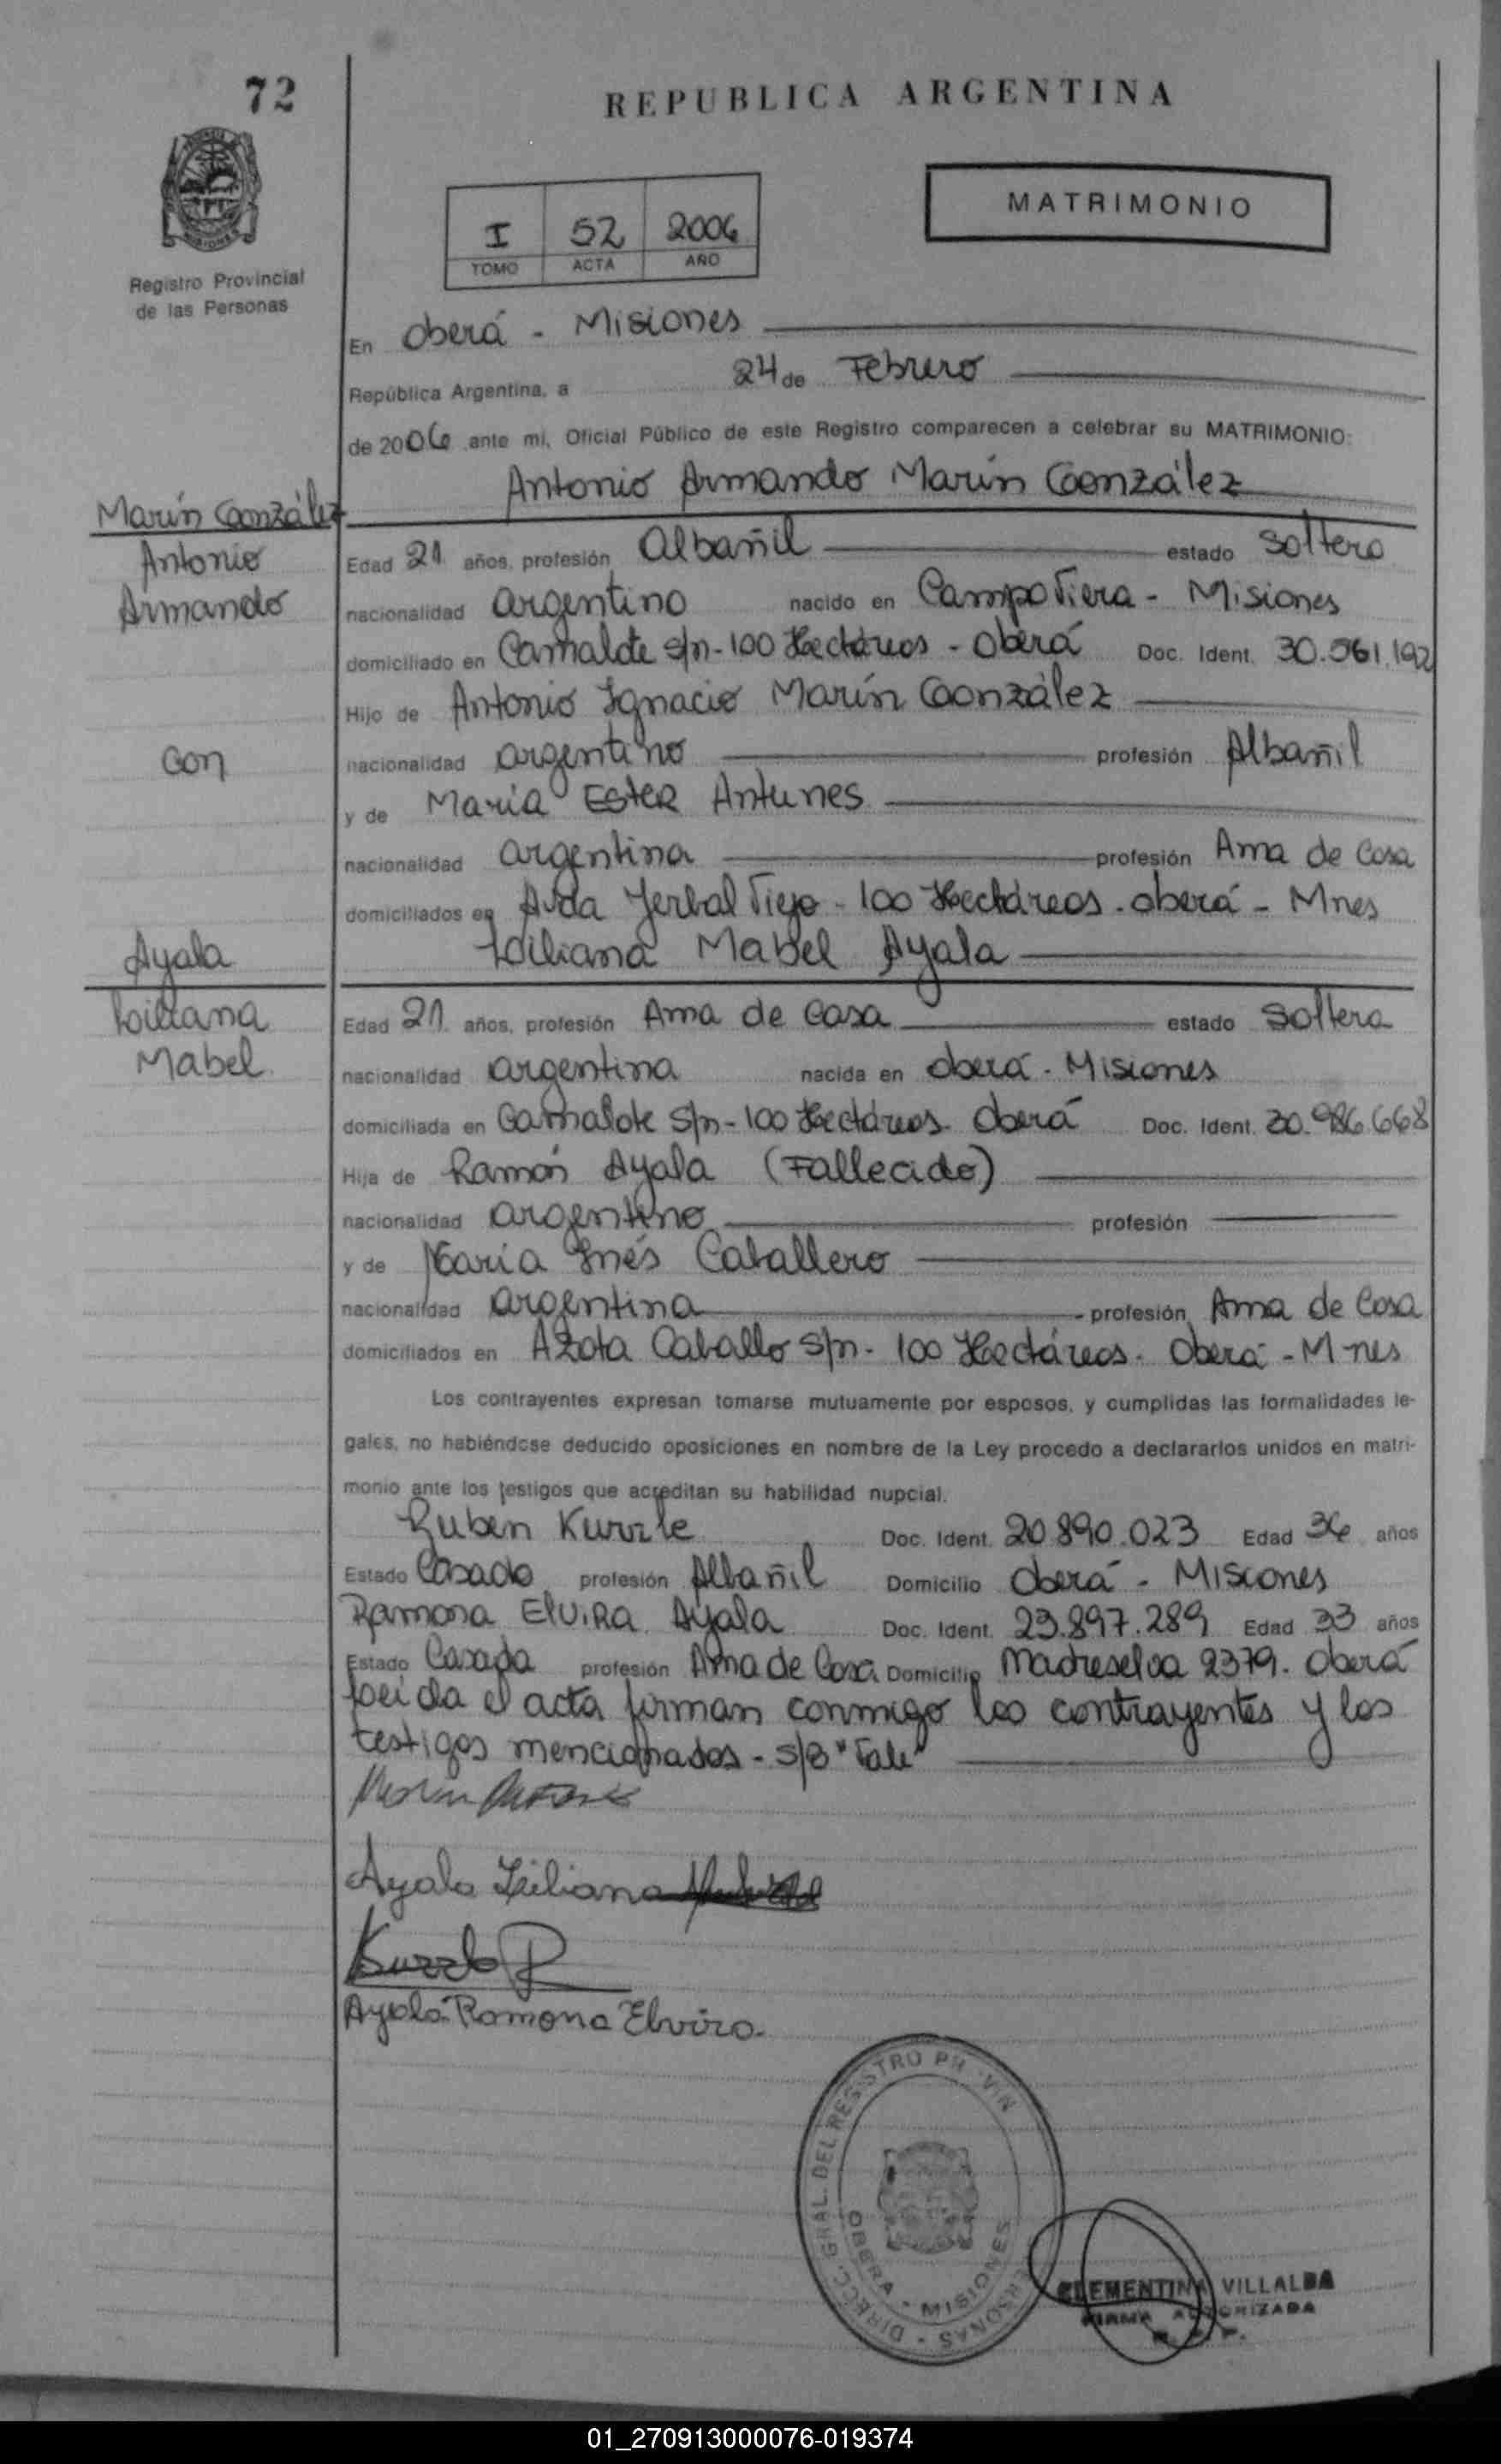 72
REPUBLICA ARGENTINA
MATRIMONIO
I 52 2006
TOMO ACTA AÑO
Registro Provincial
de las Personas
En Oberá - Misiones
República Argentina, a 24 de Febrero
de 2006 ante mi, Oficial Público de este Registro comparecen a celebrar su MATRIMONIO:
Antonio Armando Marín González
Marín González
Antonio
Armando
Edad 21 años, profesión Albañil estado Soltero
nacionalidad argentino nacido en Campo Viera - Misiones
domiciliado en Camalote s/n - 100 Hectáreas - Oberá Doc. Ident. 30.561.192
Hijo de Antonio Ignacio Marín González
con
nacionalidad argentino profesión Albañil
y de María Ester Antunes
nacionalidad argentina profesión Ama de Casa
domiciliados en Avda Yerbal Viejo - 100 Hectáreas. Oberá - Mnes
Liliana Mabel Ayala
Ayala
Liliana
Mabel
Edad 21 años, profesión Ama de Casa estado Soltera
nacionalidad argentina nacida en Oberá - Misiones
domiciliada en Camalote s/n - 100 Hectáreas. Oberá Doc. Ident. 30.986.668
Hija de Ramón Ayala (Fallecido)
nacionalidad argentino profesión
y de María Inés Caballero
nacionalidad argentina profesión Ama de Casa
domiciliados en Azota Caballo s/n - 100 Hectáreas - Oberá - Mnes
Los contrayentes expresan tomarse mutuamente por esposos, y cumplidas las formalidades le-
gales, no habiéndose deducido oposiciones en nombre de la Ley procedo a declararlos unidos en matri-
monio ante los testigos que acreditan su habilidad nupcial.
Ruben Kurrle Doc. Ident. 20.890.023 Edad 36 años
Estado Casado profesión Albañil Domicilio Oberá - Misiones
Ramona Elvira Ayala Doc. Ident. 23.897.289 Edad 33 años
Estado Casada profesión Ama de Casa Domicilio Madreselva 2379. Oberá
Leída el acta firman conmigo los contrayentes y los
testigos mencionados - S/B "Vale"
Ayala Liliana
Ayala Ramona Elvira
DIRECC. GRAL. DEL REGISTRO PERSONAS
OBERA - MISIONES
CLEMENTINA VILLALBA
FIRMA AUTORIZADA
01_270913000076-019374